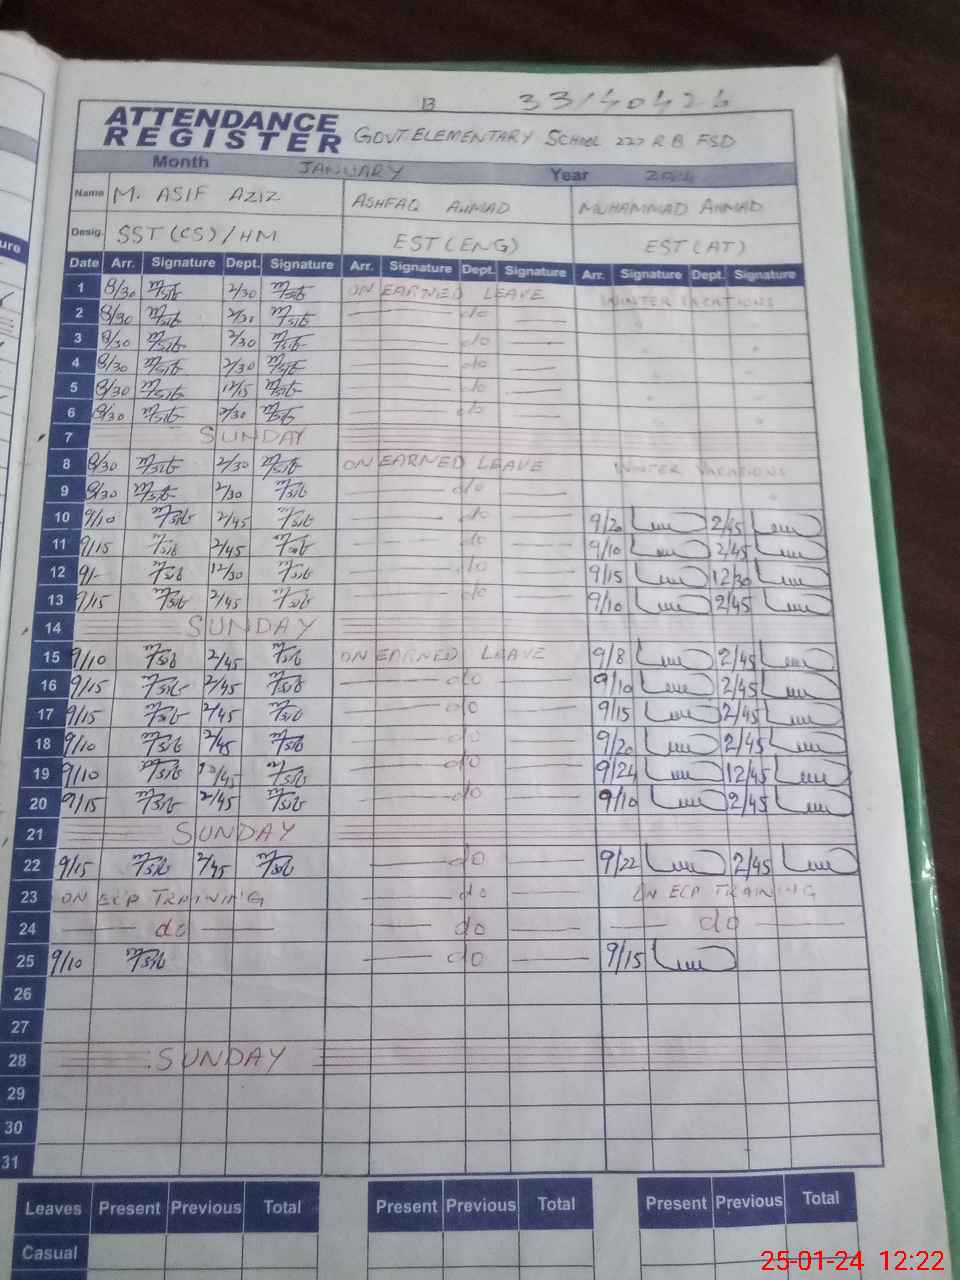 13 33140424
ATTENDANCE
REGISTER GOVT ELEMENTARY SCHOOL 227 RB FSD
Month JANUARY Year 2024
Name M. ASIF AZIZ ASHFAQ AHMAD MUHAMMAD AHMAD
Desig. SST (CS) / HM EST (ENG) EST (AT)
Date Arr. Signature Dept. Signature Arr. Signature Dept. Signature Arr. Signature Dept. Signature
1 8/30 2/30 ON EARNED LEAVE WINTER VACATIONS
2 8/30 2/30 do
3 8/30 2/30 do
4 8/30 2/30 do
5 8/30 12/15 do
6 8/30 2/30 do
7 SUNDAY
8 8/30 2/30 ON EARNED LEAVE WINTER VACATIONS
9 8/30 2/30 do
10 9/10 2/45 do 9/20 2/45
11 9/15 2/45 do 9/10 2/45
12 9/- 12/30 do 9/15 12/30
13 9/15 2/45 do 9/10 2/45
14 SUNDAY
15 9/10 2/45 ON EARNED LEAVE 9/8 2/45
16 9/15 2/45 do 9/10 2/45
17 9/15 2/45 do 9/15 2/45
18 9/10 2/45 do 9/20 2/45
19 9/10 12/45 do 9/24 12/45
20 9/15 2/45 do 9/10 2/45
21 SUNDAY
22 9/15 2/45 do 9/22 2/45
23 ON ECP TRAINING do ON ECP TRAINING
24 do do do
25 9/10 do 9/15
26
27
28 SUNDAY
29
30
31
Leaves Present Previous Total Present Previous Total Present Previous Total
Casual
25-01-24 12:22